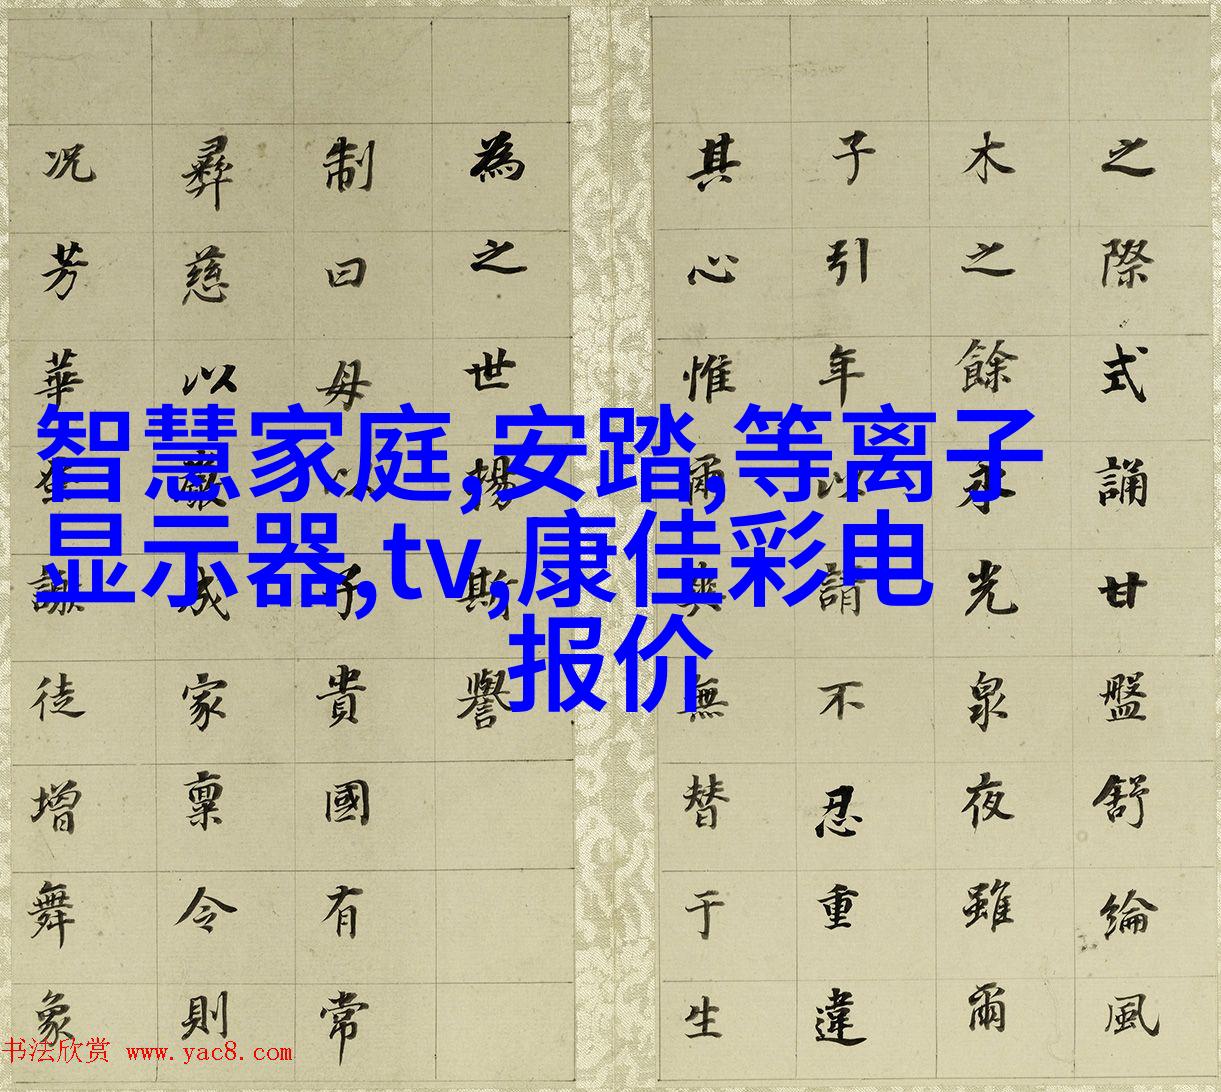 之際式誦甘盤舒綸風
木之餘永光泉夜雖爾
子引年以請不忍重違
其心惟爾無替于生
為之世揚斯譽
制曰母以子貴國有常
彝慈以嚴成家稟令則
况芳華謝徒增舞象
智慧家庭,安踏,等离子
显示器,tv,康佳彩电
报价
书法欣赏 www.yac8.com